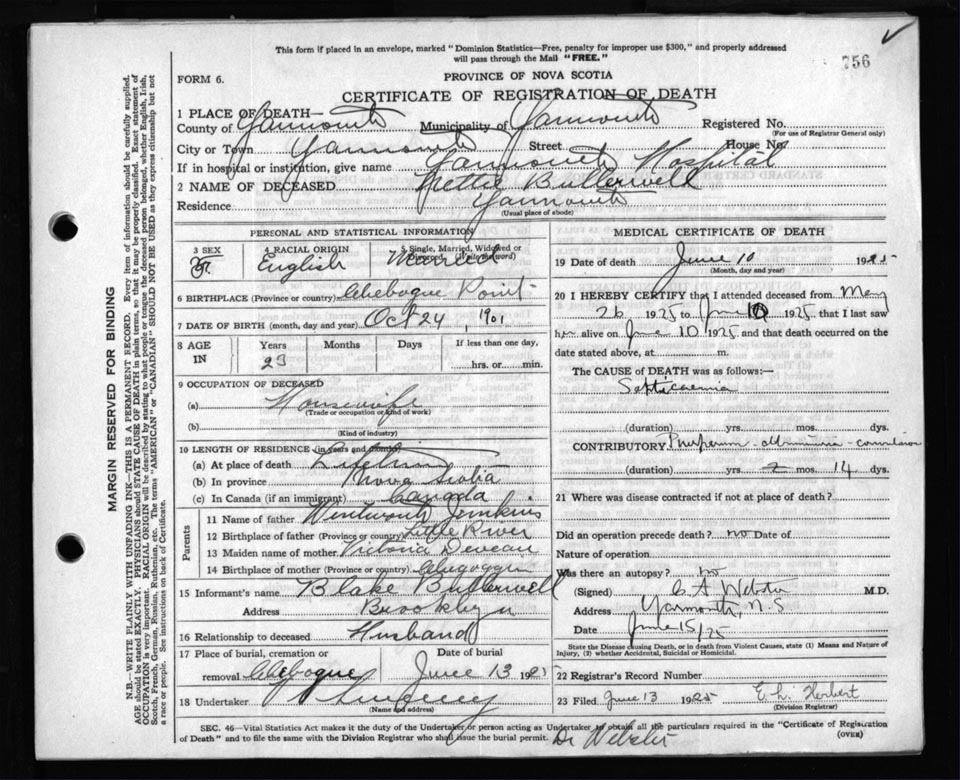 This form if placed in an envelope, marked "Dominion Statistics—Free, penalty for improper use $300," and properly addressed
will pass through the Mail "FREE."
756
FORM 6.
PROVINCE OF NOVA SCOTIA
CERTIFICATE OF REGISTRATION OF DEATH
1 PLACE OF DEATH—
County of Yarmouth Municipality of Yarmouth Registered No.
(For use of Registrar General only)
City or Town Yarmouth Street House No.
If in hospital or institution, give name Yarmouth Hospital
2 NAME OF DECEASED Nettie Butterwell
Residence Yarmouth
(Usual place of abode)
PERSONAL AND STATISTICAL INFORMATION
3 SEX F.
4 RACIAL ORIGIN English
5 Single, Married, Widowed or
Divorced (Write the word)
Married
6 BIRTHPLACE (Province or country) Chebogue Point
7 DATE OF BIRTH (month, day and year) Oct 24, 1901
8 AGE IN Years Months Days If less than one day,
23 hrs. or min.
9 OCCUPATION OF DECEASED
(a) Housewife
(Trade or occupation or kind of work)
(b)
(Kind of industry)
10 LENGTH OF RESIDENCE (in years and months)
(a) At place of death Lifetime
(b) In province Nova Scotia
(c) In Canada (if an immigrant) Canada
Parents
11 Name of father Wentworth Jenkins
12 Birthplace of father (Province or country) Little River
13 Maiden name of mother Victoria Deveau
14 Birthplace of mother (Province or country) Chegoggin
15 Informant's name Blake Butterwell
Address Brooklyn
16 Relationship to deceased Husband
17 Place of burial, cremation or Date of burial
removal Chebogue June 13 1925
18 Undertaker
(Name and address)
MEDICAL CERTIFICATE OF DEATH
19 Date of death June 10 1925
(Month, day and year)
20 I HEREBY CERTIFY that I attended deceased from May
26 1925 to June 10 1925 that I last saw
her alive on June 10 1925 and that death occurred on the
date stated above, at m.
The CAUSE of DEATH was as follows:—
Septicaemia
(duration) yrs. mos. dys.
CONTRIBUTORY
(duration) yrs. mos. 14 dys.
21 Where was disease contracted if not at place of death?
Did an operation precede death? no Date of
Nature of operation
Was there an autopsy? no
(Signed) C A Webster M.D.
Address Yarmouth, N.S
Date June 15/25
State the Disease causing Death, or in death from Violent Causes, state (1) Means and Nature of
Injury, (2) whether Accidental, Suicidal or Homicidal.
22 Registrar's Record Number
23 Filed June 13 1925 E. L. Herbert
(Division Registrar)
SEC. 46—Vital Statistics Act makes it the duty of the Undertaker or person acting as Undertaker to obtain all the particulars required in the "Certificate of Registration
of Death" and to file the same with the Division Registrar who shall issue the burial permit. Dr Webster (OVER)
MARGIN RESERVED FOR BINDING
N.B.—WRITE PLAINLY WITH UNFADING INK—THIS IS A PERMANENT RECORD. Every item of information should be carefully supplied.
AGE should be stated EXACTLY. PHYSICIANS should STATE CAUSE OF DEATH in plain terms, so that it may be properly classified. Exact statement of
OCCUPATION is very important. RACIAL ORIGIN will be described by stating to what people or tongue the deceased person belonged, whether English, Irish,
Scotch, French, German, Russian, Ruthenian, etc. The terms "AMERICAN" or "CANADIAN" SHOULD NOT BE USED as they express citizenship but not
a race or people. See instructions on back of Certificate.